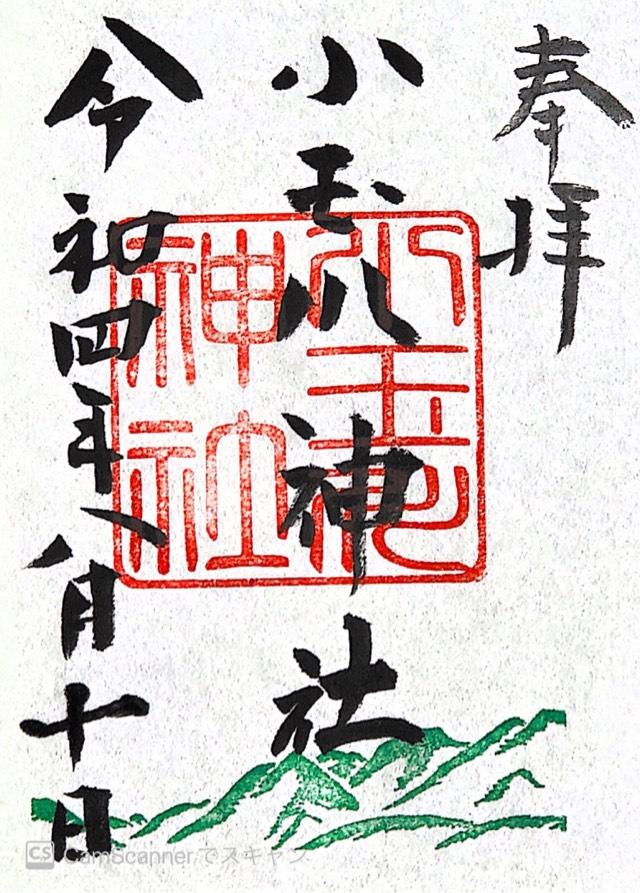 奉拝
小玉川神社
令和四年八月十日
CS CamScannerでスキャン